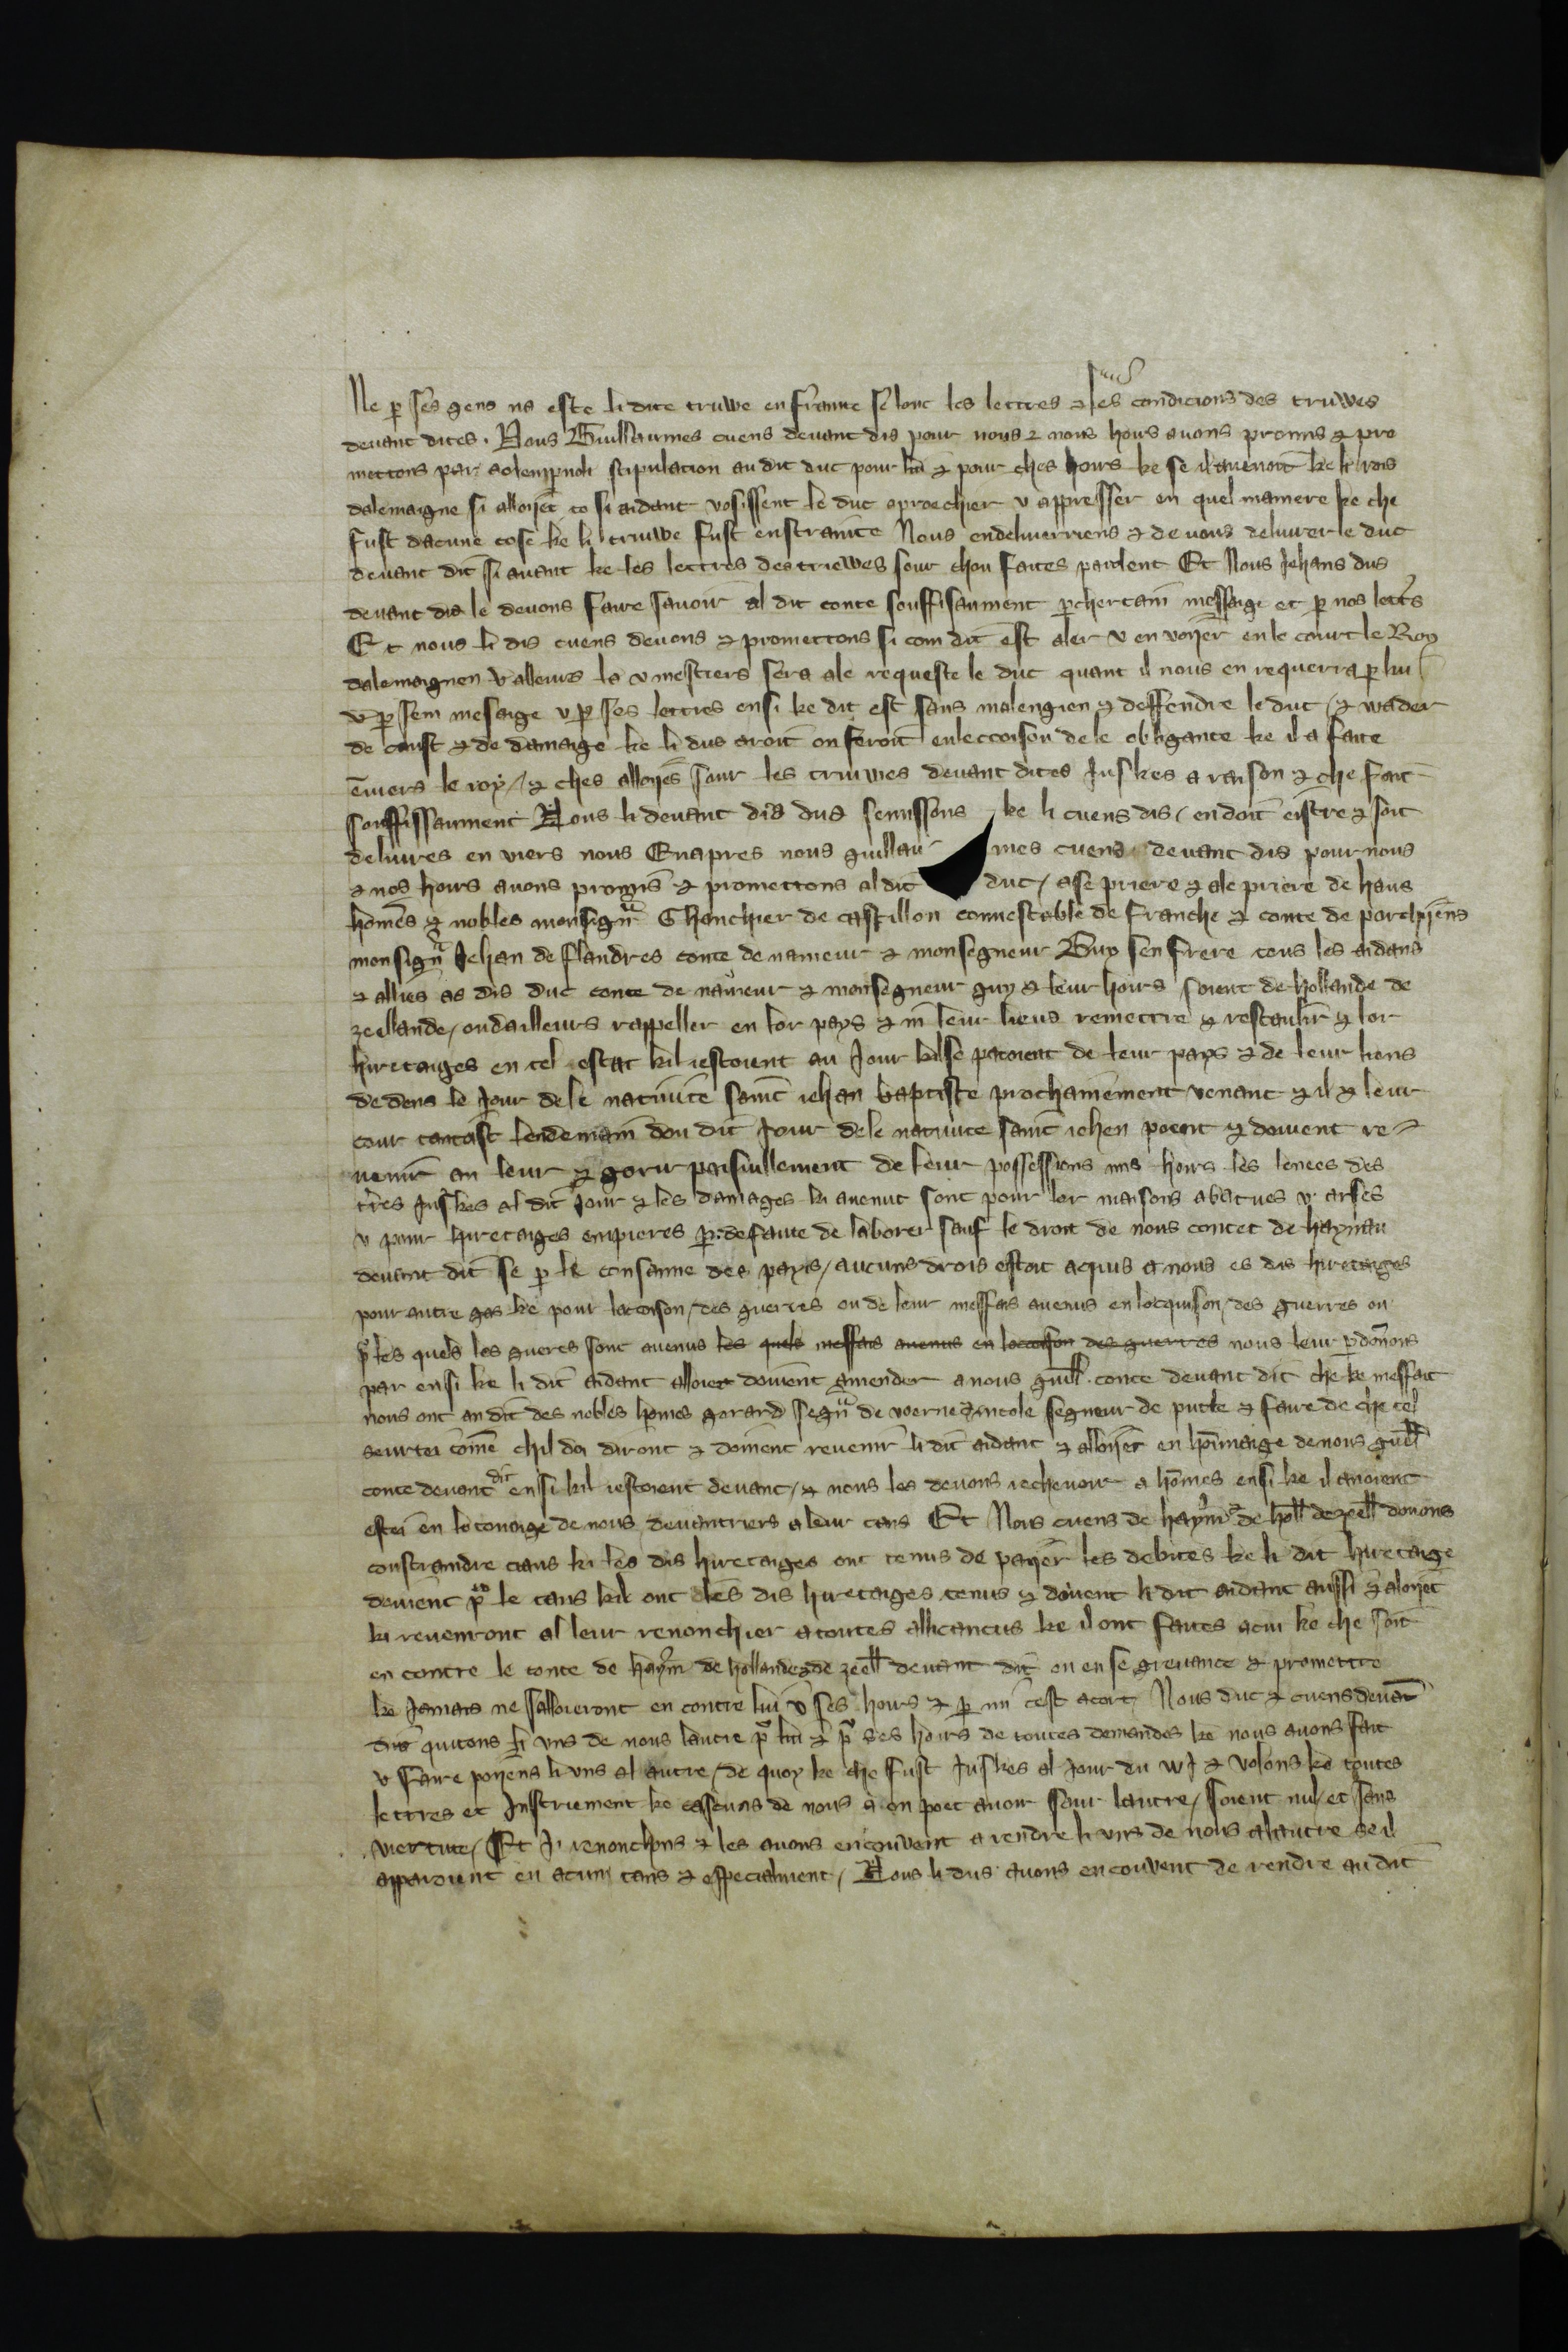 Ne p̲ ses gens na este li dite truwe enfrainte selonc les lettres ⁊ les condicions des truwes
devant dites. Nous Guillaumes cuens devant dis pour nous ⁊ nous hoirs avons promis ⁊ pro
mettons par solempneli stipulation au dit duc pour lui ⁊ pour ches hoirs ke se il avenoit ke li rois
dalemaigne si alloijet co si aidant vosissent le duc aproechier v appresser en quel maniere ke che
fust dacune cose ke li truwe fust enfrainte Nous endeliverriens ⁊ devons delivrer le duc
devant dit si avant ke les lettres des triewes sour chou faites parlent Et Nous Jehans dus
devant dis le devons faire savoir al dit conte souffisaument p̲ chertain messaige et p̲ nos lettr̃s
Et nous li dis cuens devons ⁊ promettons si com dit est aler v envoijer en le court le Roy
dalemaignen v alleurs la v mestiers sera ale requeste le duc quant il nous en requerra p̲ lui
v p̲ sem mesaige v p̲ ses lettres ensi ke dit est sans malengien ⁊ deffendre le duc / ⁊ wader
de coust ⁊ de damaige ke li dus aroit ou feroit en leccoison de le obligance ke il a faite
envers le roy / ⁊ ches alloijes sour les truwes devant dites Juskes a raison ⁊ che fait
souffissaument Nous li devant dis dus ke li cuens dis / en doit eistre ⁊ soit
delivres en viers nous Enapres nous guillau- mes cuens devant dis pour nous
⁊ nos hoirs avons promis ⁊ promettons al dit duc / a se priere ⁊ ale priere de haus
hom̄es ⁊ nobles monsign̄r Ghauchier de castillon connestable de franche ⁊ conte de porchiens
monsign̄r Jehan de flandres conte de nameur ⁊ monsegneur Guy sen frere tous les aidans
⁊ allies as dis duc conte de nameur ⁊ monsegneur guy ⁊ leur hoirs soient de hollande de
zeellande / ou dailleurs rappeller en lor pays ⁊ in leur lieus remettre ⁊ restaulir ⁊ lor
hiretaiges en tel estat kil iestoient au Jour kil se patoient de leur pays ⁊ de leur liens
dedens le Jour dele nativite saint iehan baptiste prochainement venant ⁊ il ⁊ leur
tout tantost lendemain dou dit Jour dele nativite saint iehen poent ⁊ doivent re-
venir au leur ⁊ goeir paisiullement de leur possessions mis hoirs les levees des
tr̃es Juskes al dit Jour ⁊ les damages ki avenut sont pour lor maisons abatues v arses
v pour hiretaiges empieres p̲ defaute de laborer sauf le droit de nous contet de haynau
devant dit se p̲ le coustume des pays / aucuns drois estoit aquis a nous es dis hiretaiges
pour autre gas ke pour loccoison / des guerres ou de leur meffais avenus en locquison / des guerres ou
p̲ les quels les gueres sont avenus les quels meffais avenus en loccoison des guerres nous leur p̲donons
par ensi ke li dit aidant alloiet doivent amender a nous guill̃. conte devant dit che ke meffait
nous ont au dit des nobles homes gerard segn̄r de voerne ⁊ nicole segneur de putte ⁊ faire de che tel
seurtei com̄e chil doi diront ⁊ doivent revenir li dit aidant ⁊ alloijet en hom̄aige de nous guill̃
conte devant dit ensi kil iestoient devant / ⁊ nous les devons rechevoir a hom̄es ensi ke il avoient
estei en le tonaige de nous devantriers a leur tans Et Nous cuens de hayn̄ ⁊ de holl̃ de zeell̃ devons
constraindre ciaus ki les dis hiretaiges ont tenus de paijer les debites ke li dit hiretaige
doivent p̲ le tans kil ont les dis hiretaiges tenus ⁊ doivent li dit aidant aussi ⁊ aloijet
ki revenront al leur renonchier a toutes allicances ke il ont faites a cui ke che soit
en contre le conte de hayn̄ de hollande ⁊ de zeell̃ devant dit ou en se grevance ⁊ promettre
ke Jamais ne salloieront en contre lui v ses hoirs ⁊ p̲ mi cest acort Nous duc ⁊ cuens devāt
dis quitons li uns de nous lautre p̲ lui ⁊ p̲ ses hoirs de toutes demandes ke nous avons fait
v faire poijens li uns al autre / de quoy ke che fust Juskes al Jour du wJ ⁊ volons ke toutes
lettres et Instrument ke cascuns de nous a ou poet avoir sour lautre / soient nul et sans
viertute / Et Ji renonchons ⁊ les avons encouvent a rendre li uns de nous alautre se il
apparoient en acun tans ⁊ especialment / Nous li dus avons encouvent de rendre au dit